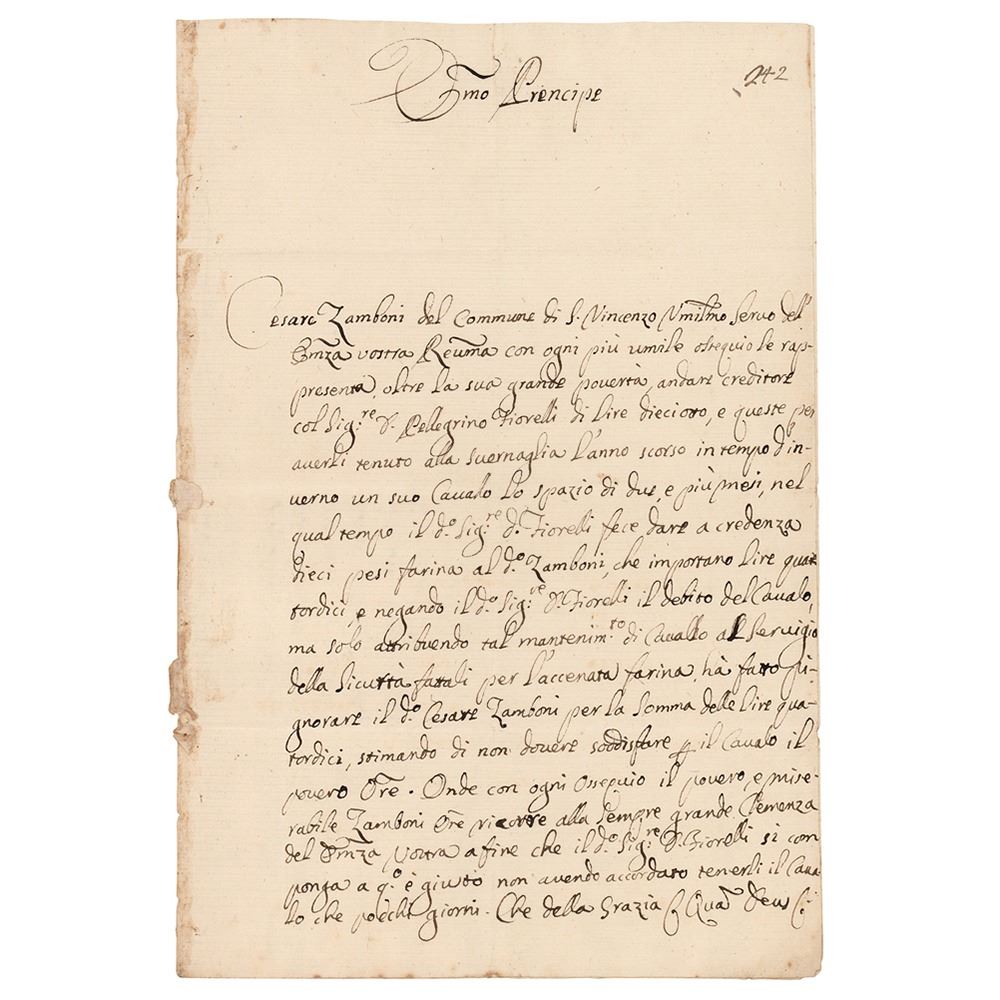 Emo Prencipe
242
Cesare Zamboni del Commune di S. Vincenzo Umilmo Servo dell'
Emza vostra Reuma con ogni più umile ossequio le rap-
presenta, oltre la sua grande povertà, andare creditore
col Sig.re D. Pellegrino Fiorelli di lire dieciotto, e queste per
averli tenuto alla suernaglia l'anno scorso in tempo d'in-
verno un suo Cavalo lo spazio di due, e più mesi, nel
qual tempo il d.o Sig.re D. Fiorelli fece dare a credenza
dieci pesi farina al d.o Zamboni, che importano lire quat
tordici, e negando il d.o Sig.re D. Fiorelli il debito del Cavalo,
ma solo attribuendo tal mantenim.to di Cavallo al Servigio
della Sicurtà fattali per l'accenata farina, hà fatto pi-
gnorare il d.o Cesare Zamboni per la Somma delle lire qua-
tordici, stimando di non dovere soddisfare p il Cavalo il
povero Ore. Onde con ogni Ossequio il povero, e mise-
rabile Zamboni Ore ricorre alla Sempre grande Clemenza
del Emza Vostra a fine che il d.o Sig.re D. Fiorelli si con
ponga a q.o è giusto non avendo accordato tenerli il Cava
lo che pochi giorni. Che della Grazia &c Quam Deus &c